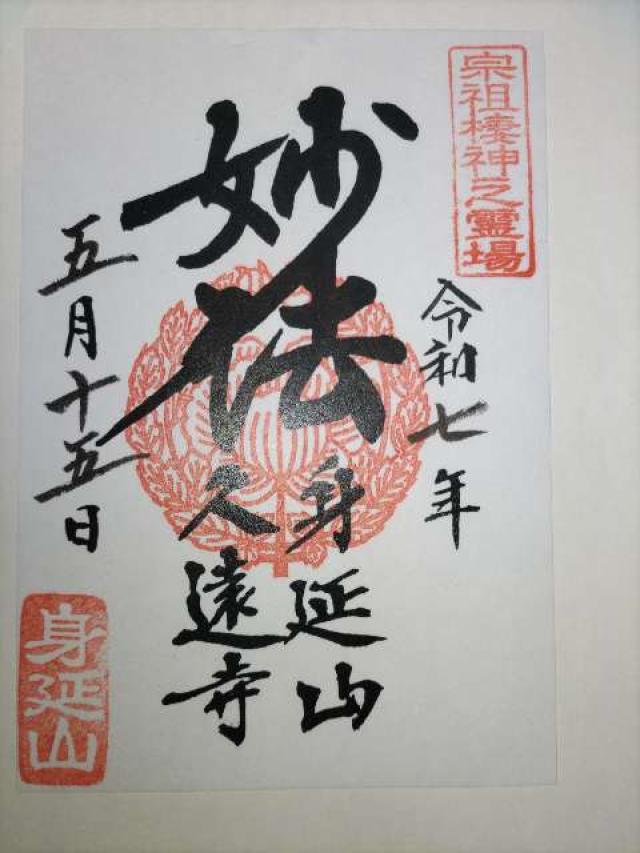 宗祖棲神之霊場
令和七年
妙法
身延山
久遠寺
五月十五日
身延山